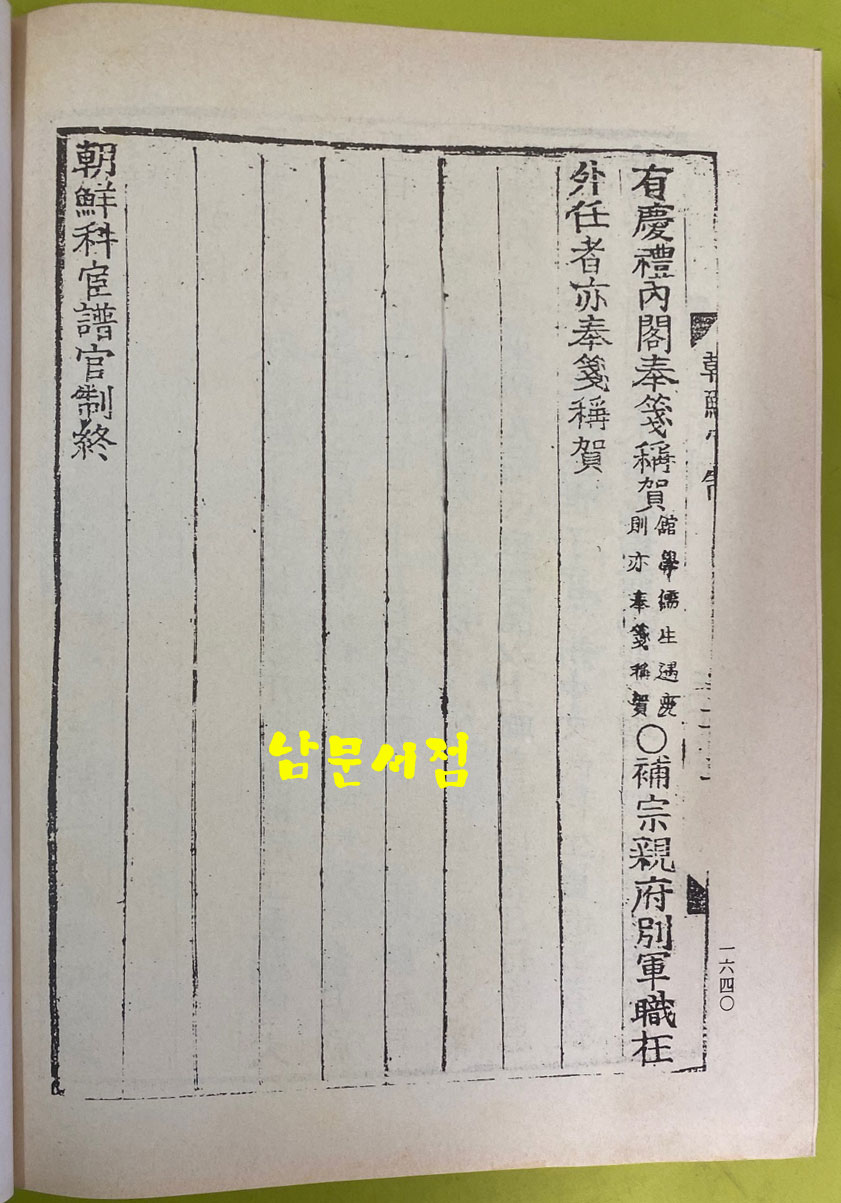 有慶禮內閣奉箋稱賀館學儒生遇慶則亦奉箋稱賀○補宗親府別軍職在
外任者亦奉箋稱賀
朝鮮科宦譜官制終
朝鮮官制
一六四〇
남문서점